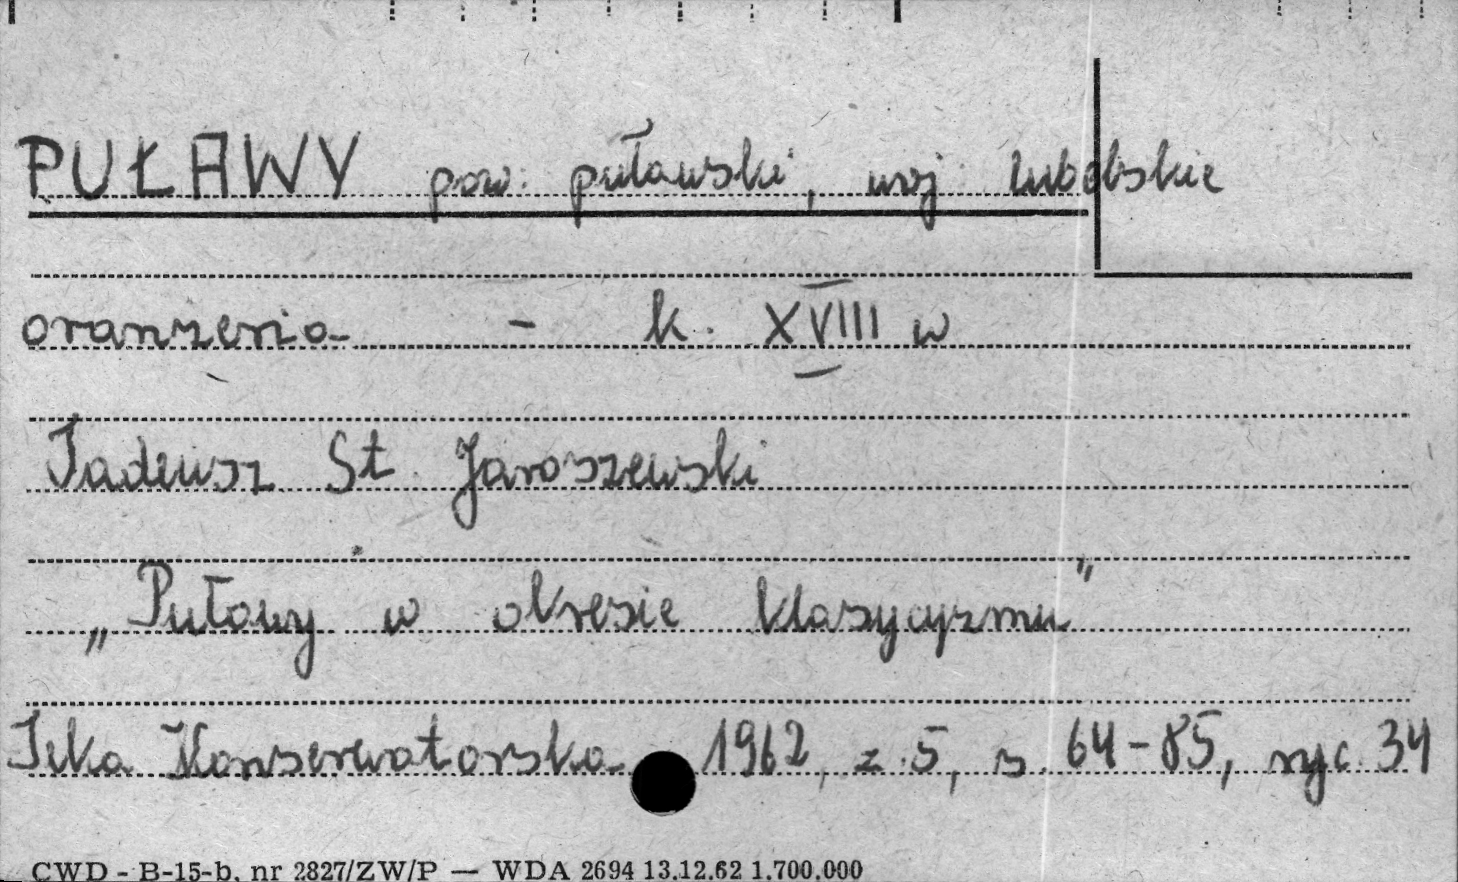 PUŁAWY pow. puławski, woj lubelskie
oranżeria - k. XVIII w
Tadeusz St. Jaroszewski
„Puławy w okresie klasycyzmu”
Teka Konserwatorska 1962, z.5, s. 64-85, ryc. 34
CWD - B-15-b, nr 2827/ZW/P — WDA 2694 13.12.62 1.700.000